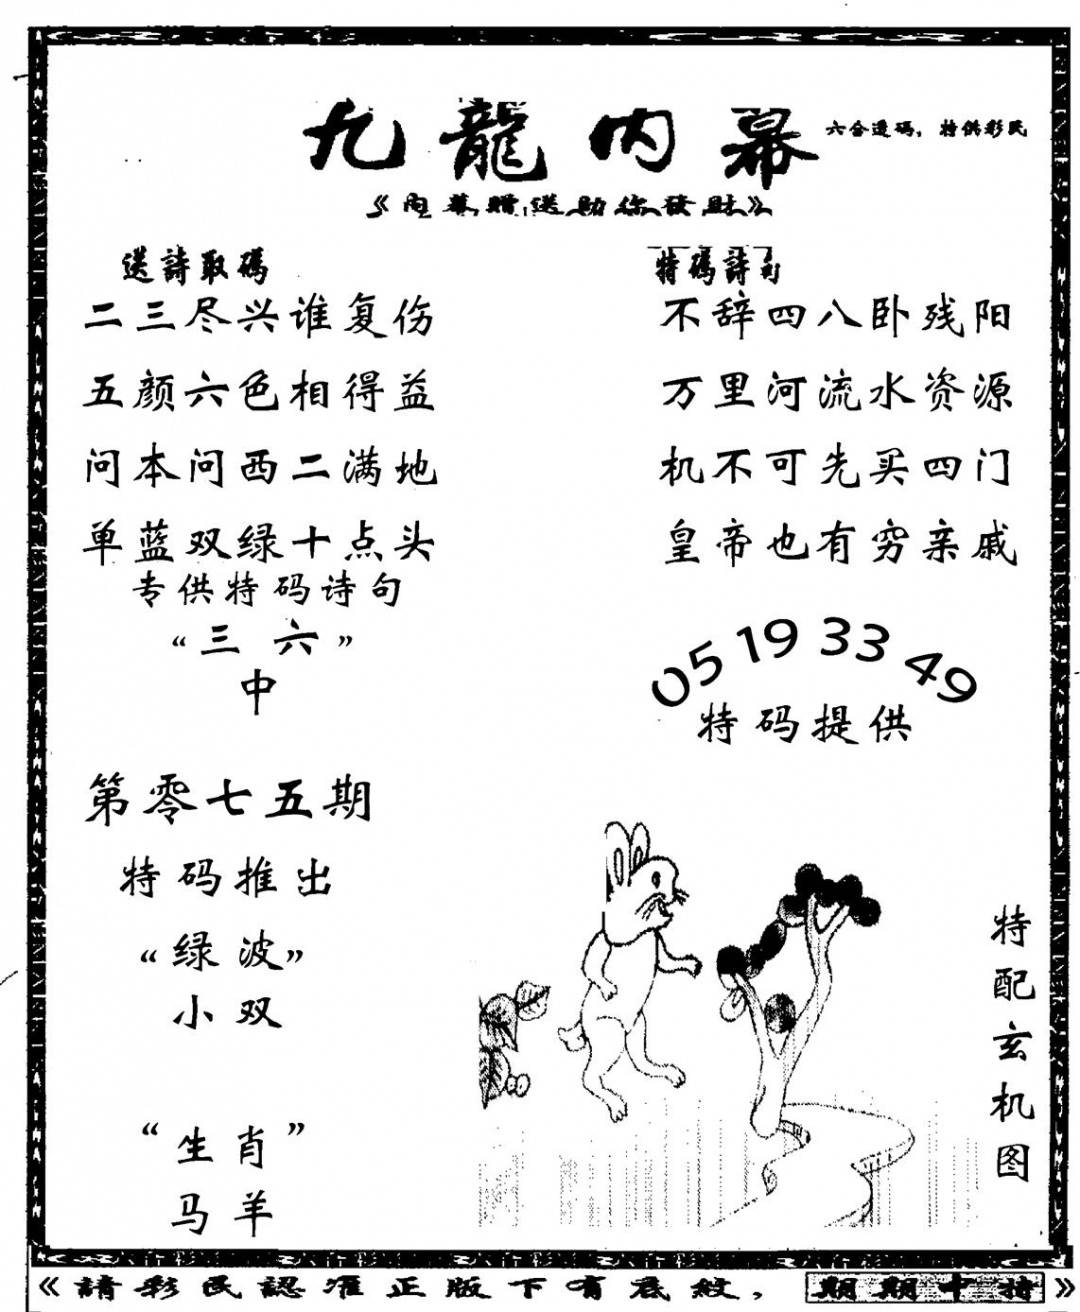 九龍内幕
六合透码，特供彩民
《内幕贈送助你發財》
送詩取碼
二三尽兴谁复伤
五颜六色相得益
问本问西二满地
单蓝双绿十点头
专供特码诗句
“三六”
中
第零七五期
特码推出
“绿波”
小双
“生肖”
马羊
特碼詩句
不辞四八卧残阳
万里河流水资源
机不可先买四门
皇帝也有穷亲戚
05 19 33 49
特码提供
特配玄机图
《請彩民認准正版下有底紋，期期中特》